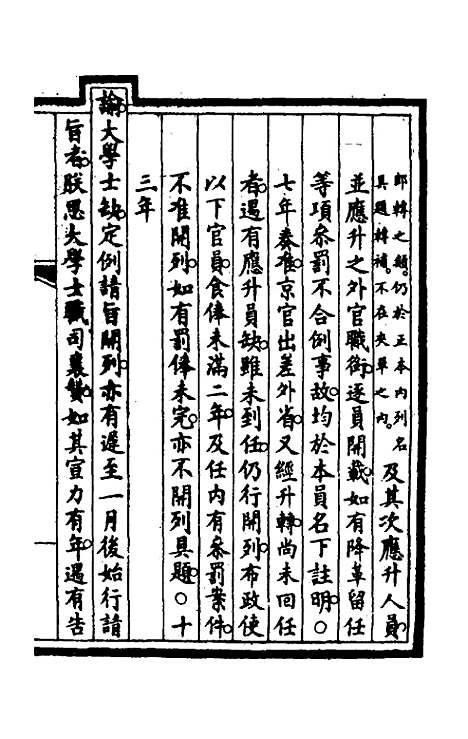 郎轉之類。仍於正本内列名
具題轉補。不在夾單之内。
及其次應升人員。
並應升之外官職銜。逐員開載。如有降革留任
等項參罰不合例事故。均於本員名下註明。〇
七年奏准。京官出差外省。又經升轉。尚未回任
者。遇有應升員缺。雖未到任。仍行開列。布政使
以下官員。食俸未滿二年。及任内有參罰案件。
不准開列。如有罰俸未完。亦不開列具題。〇十
三年
諭大學士缺。定例請旨開列。亦有遲至一月後始行請
旨者。朕思大學士職司襄贊。如其宣力有年。遇有告